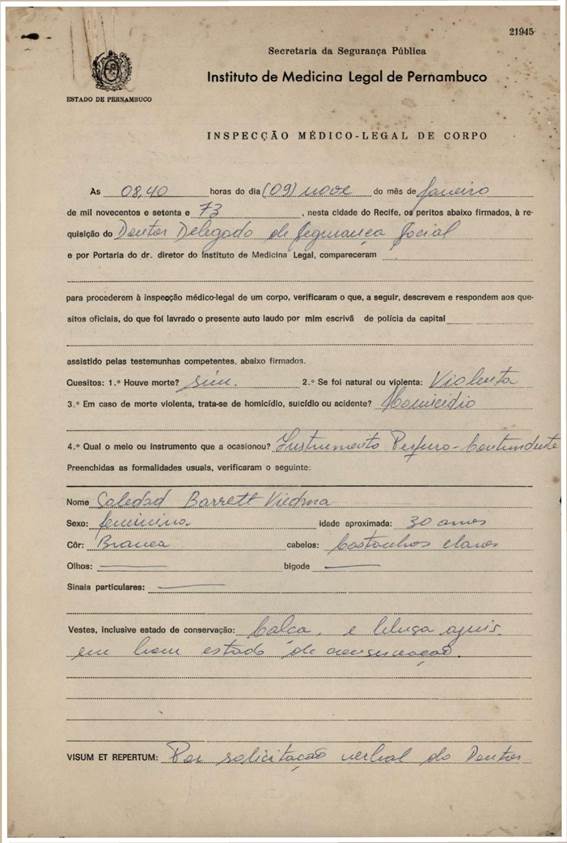 21945
ESTADO DE PERNAMBUCO
Secretaria da Segurança Pública
Instituto de Medicina Legal de Pernambuco
INSPECÇÃO MÉDICO-LEGAL DE CORPO
As 08,40 horas do dia (09) nove do mês de Janeiro
de mil novecentos e setenta e 73, nesta cidade do Recife, os peritos abaixo firmados, à re-
quisição do Doutor Delegado de Segurança Social
e por Portaria do dr. diretor do Instituto de Medicina Legal, compareceram
para procederem à inspecção médico-legal de um corpo, verificaram o que, a seguir, descrevem e respondem aos que-
sitos oficiais, do que foi lavrado o presente auto laudo por mim escrivã de polícia da capital
assistido pelas testemunhas competentes, abaixo firmados.
Quesitos: 1.º Houve morte? sim. 2.º Se foi natural ou violenta: Violenta
3.º Em caso de morte violenta, trata-se de homicídio, suicídio ou acidente? Homicídio
4.º Qual o meio ou instrumento que a ocasionou? Instrumento Perfuro-Contundente
Preenchidas as formalidades usuais, verificaram o seguinte:
Nome Soledad Barrett Viedma
Sexo: feminino. idade aproximada: 30 anos
Côr: Branca cabelos: Castanhos claros
Olhos: bigode
Sinais particulares:
Vestes, inclusive estado de conservação: Calça e blusa azuis
em bom estado de conservação.
VISUM ET REPERTUM: Por solicitação verbal do Doutor